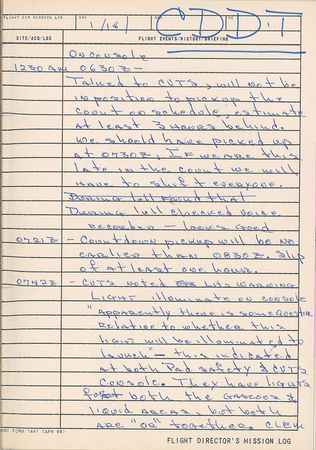 FLIGHT OUR MISSION LOG
DAY
1/18/
CDDT
SITE/ACQ/LOS
FLIGHT EVENTS/HISTORY/BRIEFING
ON CONSOLE
1230 AM 0630Z -
Talked to CVTS, will not be
in position to pick up the
count on schedule, estimate
at least 3 hours behind.
We should have picked up
at 0730Z, IF we are this
late in the count we will
have to shift everyone.
During lull found that
During lull checked voice
recorder - looks good
0721Z - Countdown pickup will be NO
earlier than 0830Z. Slip
of at least one hour.
0742Z - CVTS noted LH2 WARNING
LIGHT illuminate on console
"Apparently there is some question
relative to whether this
light will be illuminated to
launch" - this indicated
at both Pad safety & CVTS
console. They have lights
for both the GASEOUS &
liquid areas, but both
are "or" together. CLEM
MSC FORM 1441 (APR 66)
FLIGHT DIRECTOR'S MISSION LOG